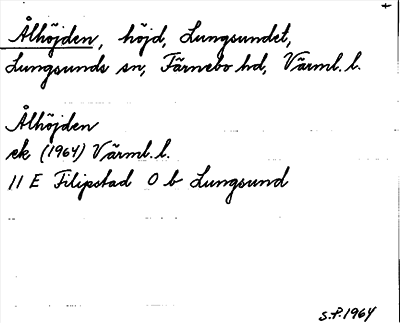 Ålhöjden, höjd, Lungsundet,
Lungsunds sn, Färnebo hd, Värml. l.
Ålhöjden
ek (1964) Värml. l.
11 E Filipstad O b Lungsund
S.P. 1964